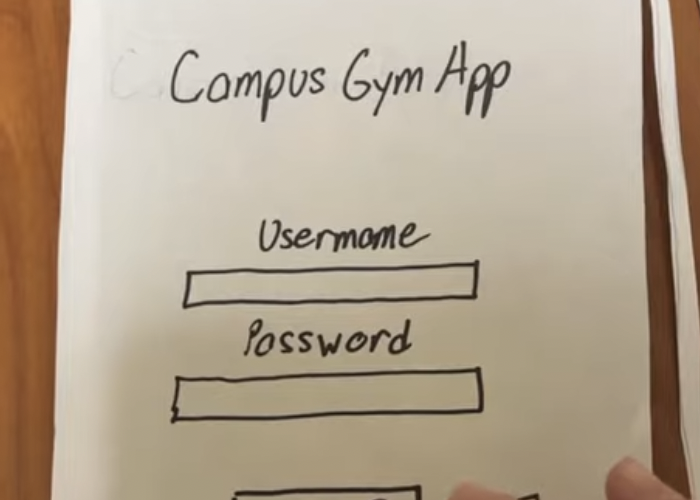 Campus Gym App
Username
Password